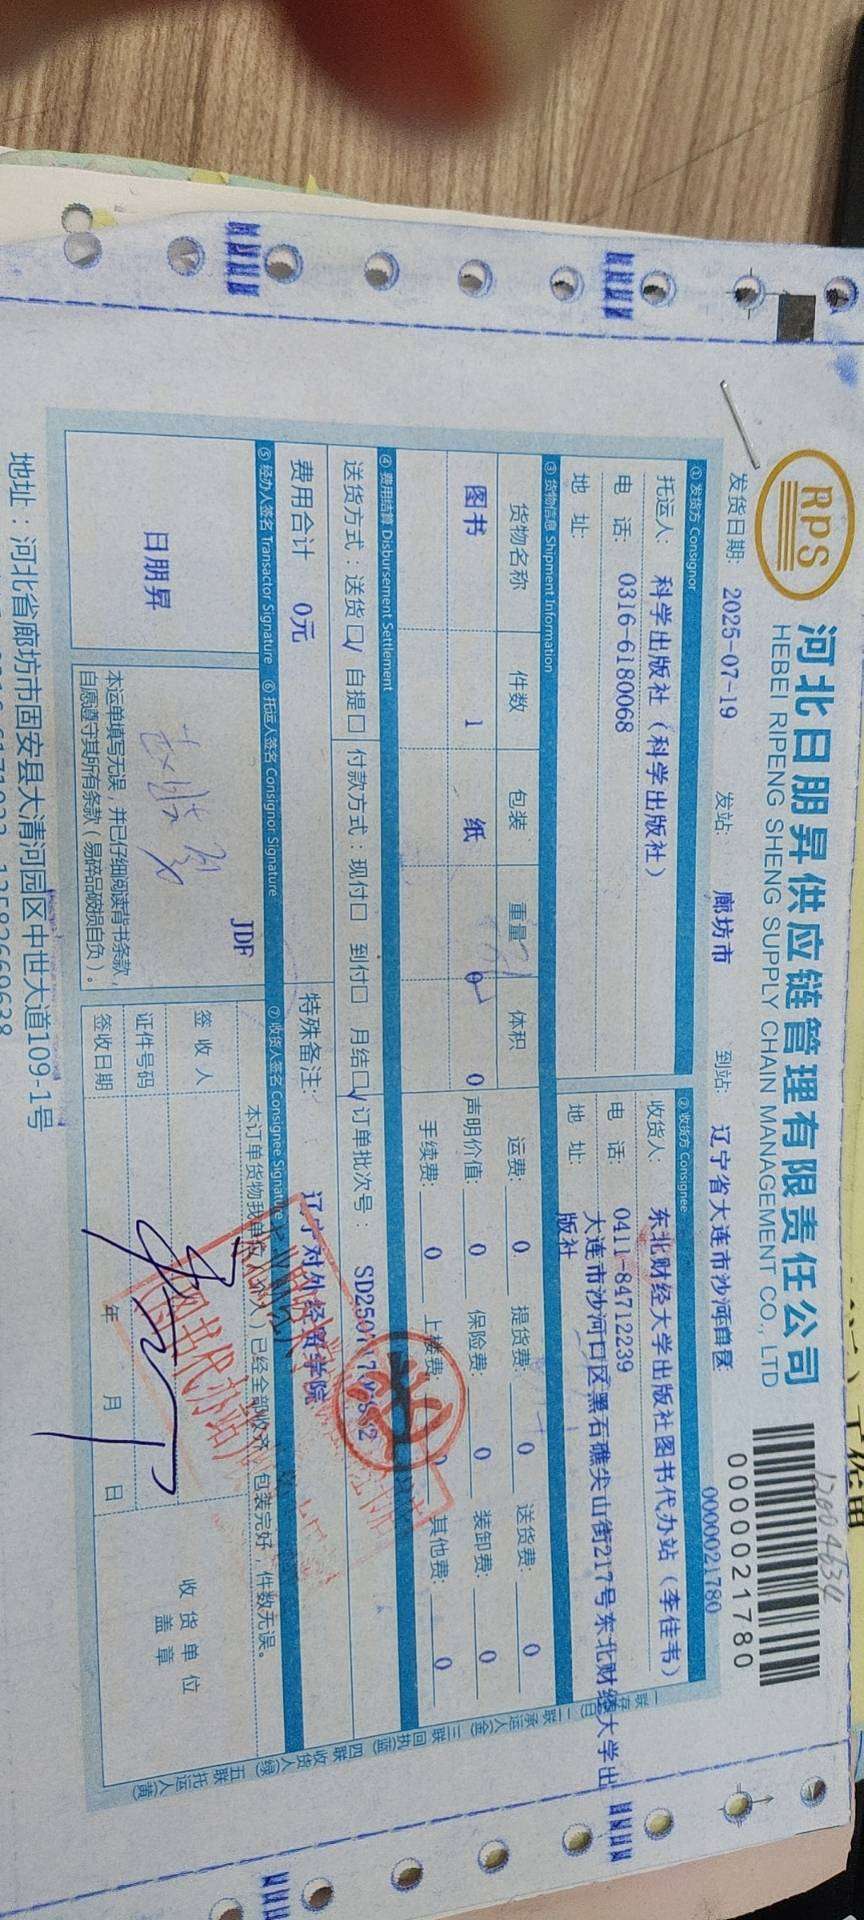 RPS
河北日朋昇供应链管理有限责任公司
HEBEI RIPENG SHENG SUPPLY CHAIN MANAGEMENT CO., LTD
0000021780
发货日期: 2025-07-19 发站: 廊坊市 到站: 辽宁省大连市沙河口区 0000021780
① 发货方 Consignor
托运人: 科学出版社（科学出版社）
电 话: 0316-6180068
地 址:
② 收货方 Consignee
收货人: 东北财经大学出版社图书代办站（李佳书）
电 话: 0411-84712239
地 址: 大连市沙河口区黑石礁尖山街217号东北财经大学出版社
③ 货物信息 Shipment Information
货物名称 件数 包装 重量 体积
图书 1 纸 0 0
运费: 0 提货费: 0 送货费: 0
声明价值: 0 保险费: 0 装卸费: 0
手续费: 0 上楼费: 其他费: 0
④ 费用结算 Disbursement Settlement
送货方式：送货□√ 自提□ 付款方式：现付□ 到付□ 月结□√ 订单批次号：
费用合计 0元 特殊备注: 辽宁对外经贸学院
⑤ 经办人签名 Transactor Signature ⑥ 托运人签名 Consignor Signature ⑦ 收货人签名 Consignee Signature
日朋昇
JDF
本运单填写无误，并已仔细阅读背书条款，
自愿遵守其所有条款（易碎品破损自负）。
本订单货物我单位（个人）已经全部收齐，包装完好，件数无误。
签 收 人
证件号码
签收日期 年 月 日
收货单位
盖 章
一联存 二联承运人(金) 三联回执(蓝) 四联收货人(绿) 五联托运人(黄)
地址：河北省廊坊市固安县大清河园区中世大道109-1号